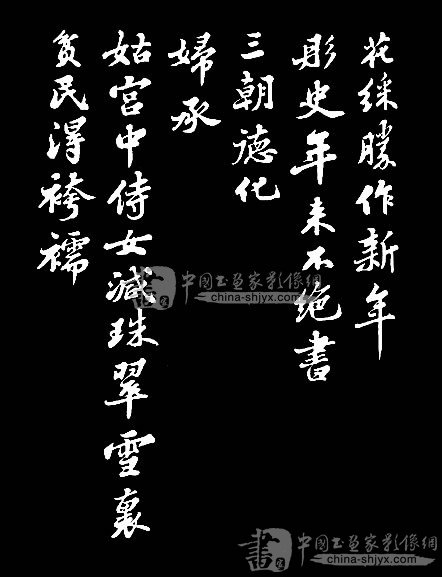 花綵勝作新年
彤史年来不絶書
三朝德化
婦承
姑宮中侍女減珠翠雪裏
貧民得袴襦
書
中國书画家影像網
china-shjyx.com
書
中國书画家影像網
china-shjyx.com